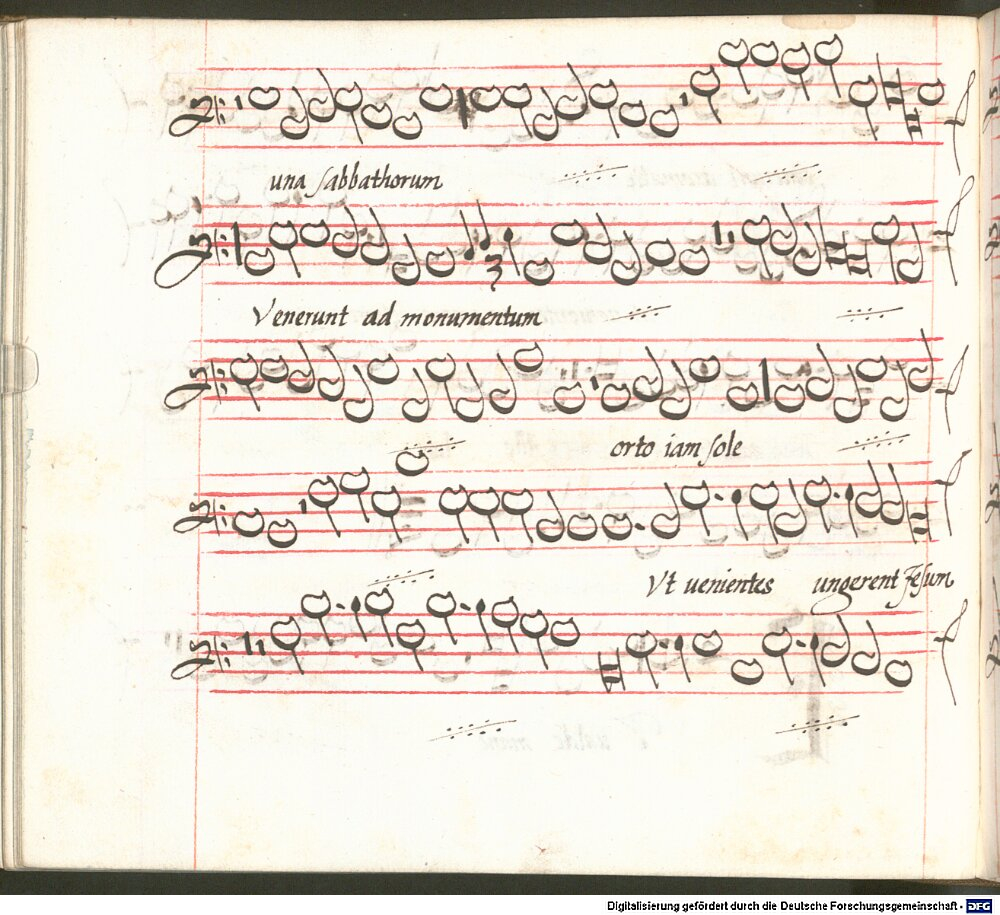 una sabbathorum
Venerunt ad monumentum
orto iam sole
Vt uenientes ungerent Jesum
Digitalisierung gefördert durch die Deutsche Forschungsgemeinschaft - DFG